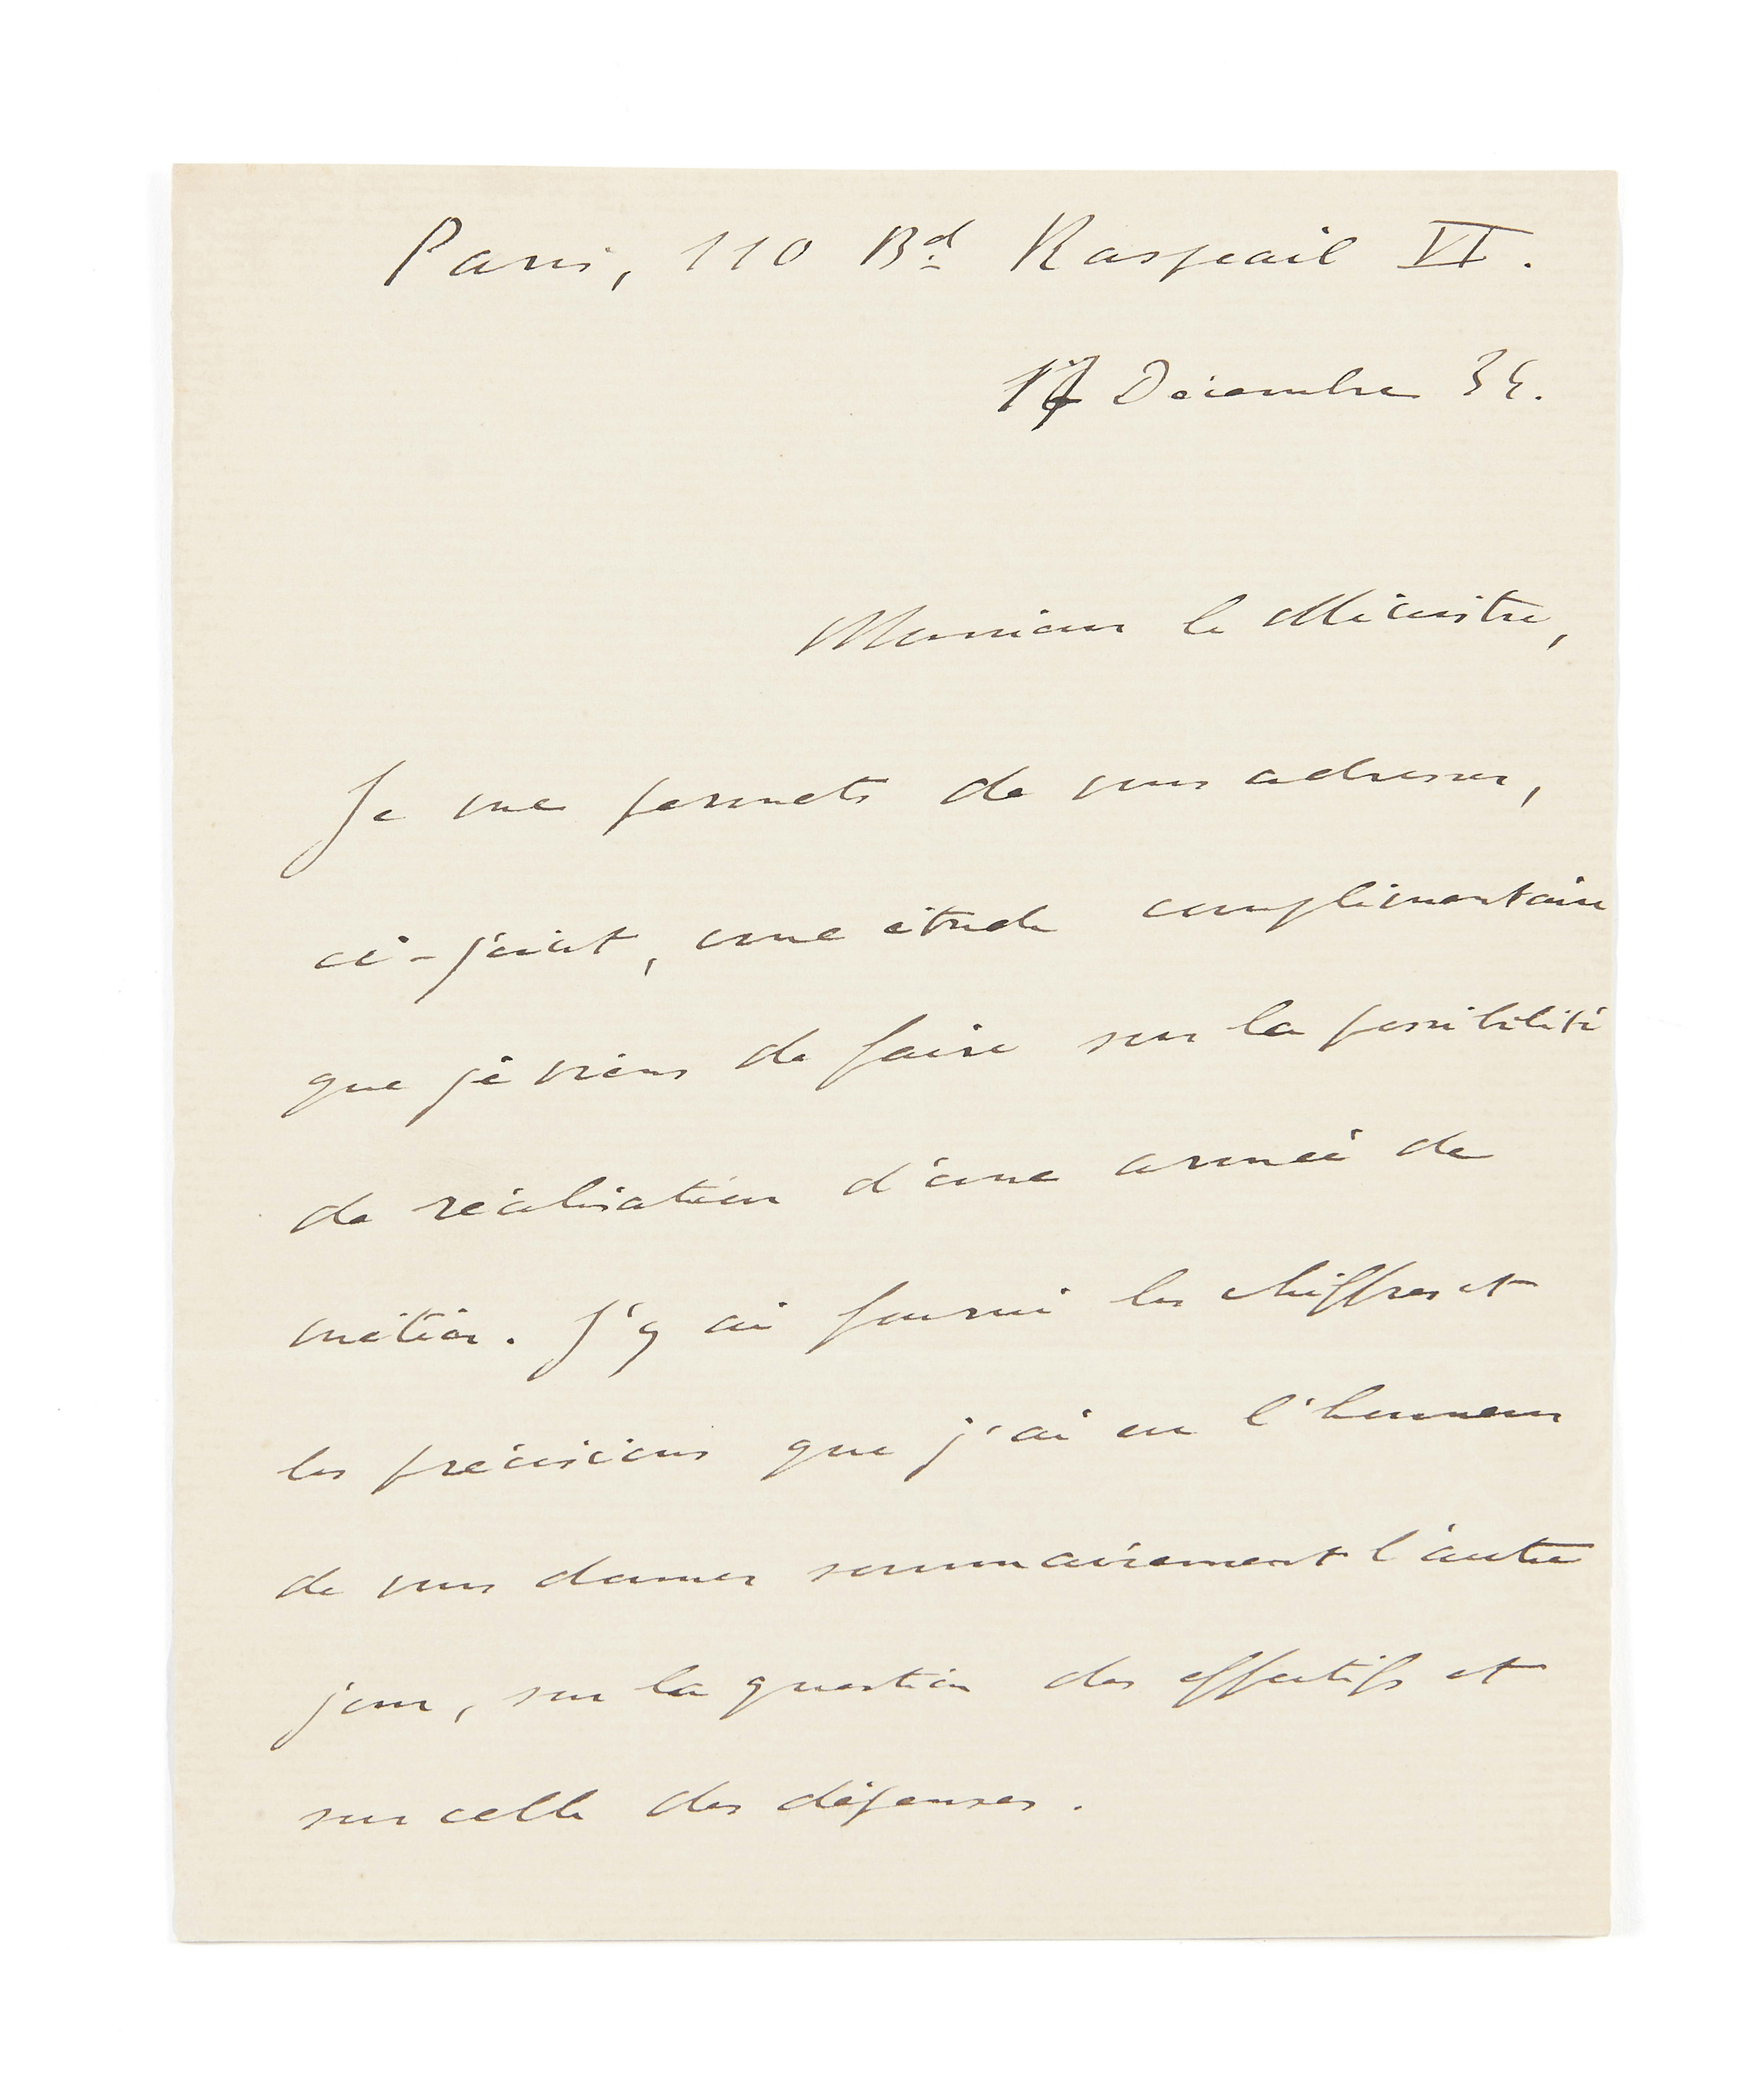 Paris, 110 Bd Raspail VI.
Décembre 34.
Monsieur le Ministre,
Je me permets de vous adresser,
ci-joint, une étude complémentaire
que je viens de faire sur la possibilité
de réalisation d'une armée de
métier. J'y ai fourni les chiffres et
les précisions que j'ai eu l'honneur
de vous donner sommairement l'autre
jour, sur la question des effectifs et
sur celle des dépenses.